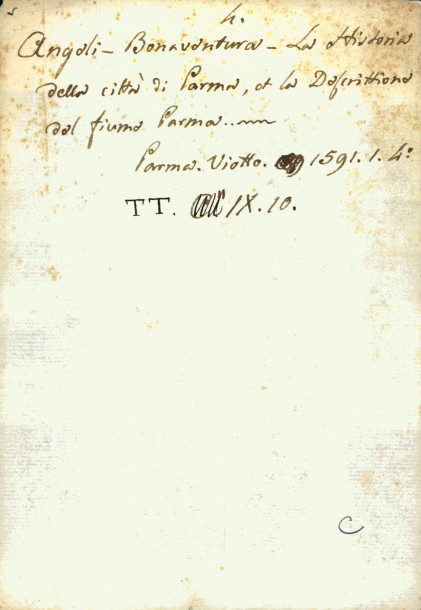 s
4.
Angeli - Bonaventura - La Historia
della città di Parma, et la Descrittione
del fiume Parma..
Parma. Viotto. 1591. 1. 4.º
TT. IX. 10.
C